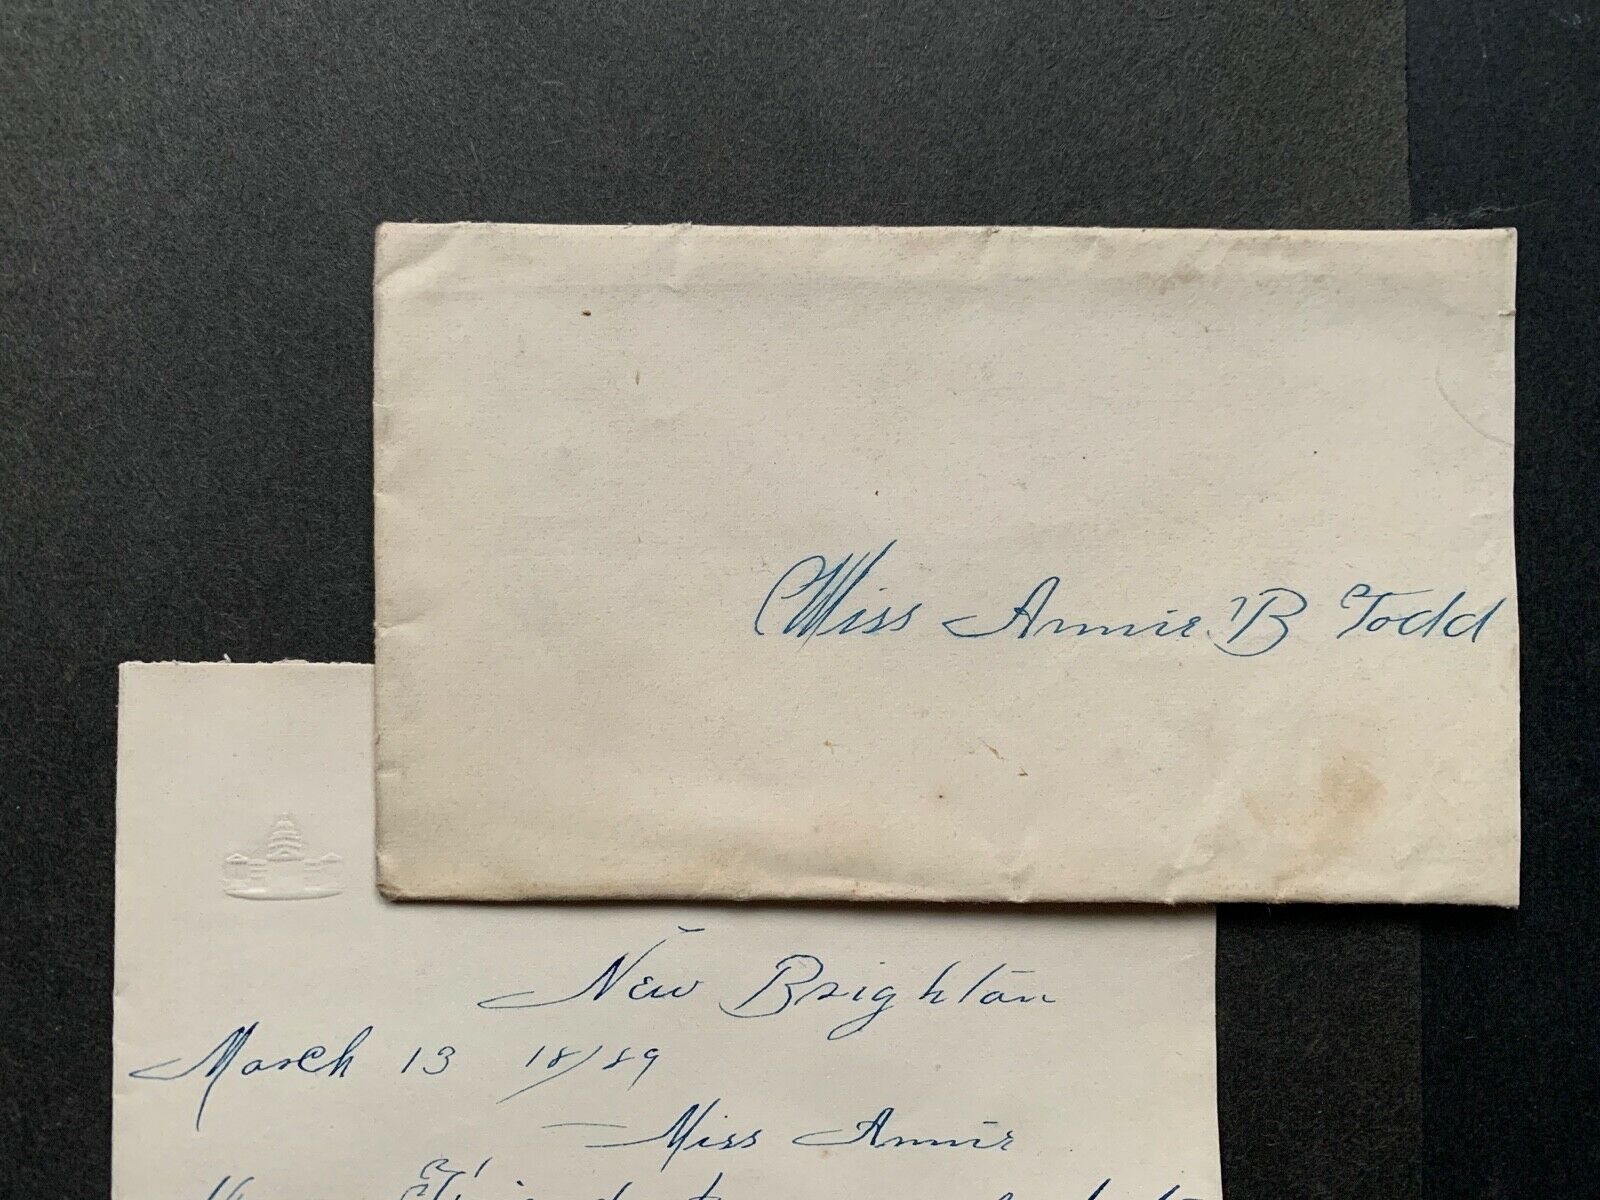 Miss Annie B Todd
New Brighton
March 13 18/89
Miss Annie
Friend